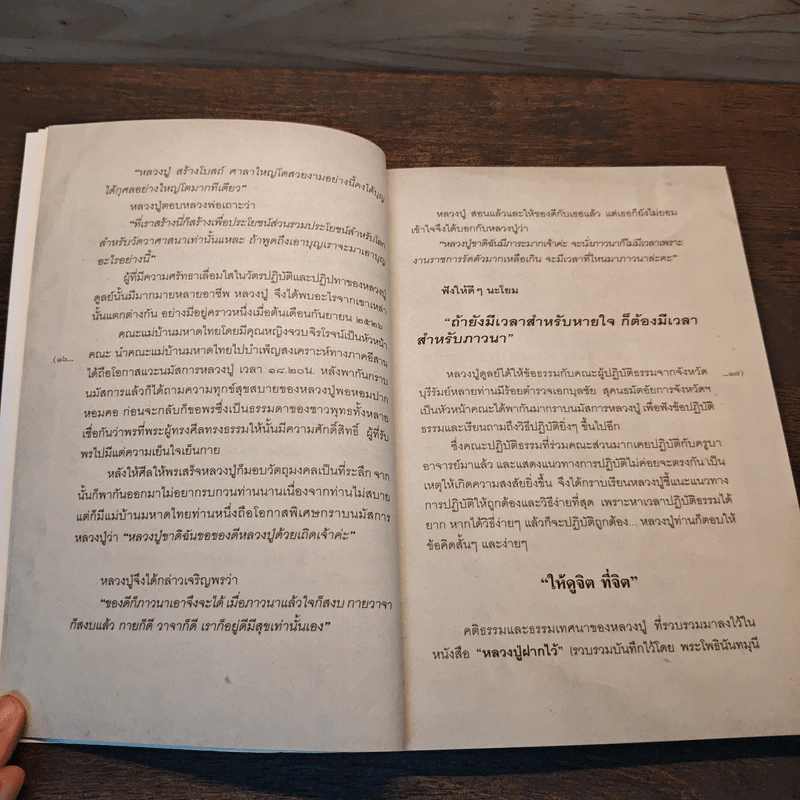 "หลวงปู่ สร้างโบสถ์ ศาลาใหญ่โตสวยงามอย่างนี้คงได้บุญ
ได้กุศลอย่างใหญ่โตมากทีเดียว"
หลวงปู่ตอบหลวงพ่อเถาะว่า
"ที่เราสร้างนี่ก็สร้างเพื่อประโยชน์ส่วนรวมประโยชน์สำหรับโลก
สำหรับวัดวาศาสนาเท่านั้นแหละ ถ้าพูดถึงเอาบุญเราจะมาเอาบุญ
อะไรอย่างนี้"
ผู้ที่มีความศรัทธาเลื่อมใสในวัตรปฏิบัติและปฏิปทาของหลวงปู่
ดูลย์นั้นมีมากมายหลายอาชีพ หลวงปู่ จึงได้พบอะไรจากเขาเหล่า
นั้นแตกต่างกัน อย่างมีอยู่คราวหนึ่งเมื่อต้นเดือนกันยายน ๒๕๒๖
คณะแม่บ้านมหาดไทยโดยมีคุณหญิงจวบจิรโรจน์เป็นหัวหน้า
(๑๖...
คณะ นำคณะแม่บ้านมหาดไทยไปบำเพ็ญสังเคราะห์ทางภาคอีสาน
ได้ถือโอกาสแวะนมัสการหลวงปู่ เวลา ๑๘.๒๐น. หลังพากันกราบ
นมัสการแล้วก็ได้ถามความทุกข์สุขสบายของหลวงปู่พอหอมปาก
หอมคอ ก่อนจะกลับก็ขอพรซึ่งเป็นธรรมดาของชาวพุทธทั้งหลาย
เชื่อกันว่าพรที่พระผู้ทรงศีลทรงธรรมให้นั้นมีความศักดิ์สิทธิ์ ผู้ที่รับ
พรไปมีแต่ความเย็นใจเย็นกาย
หลังให้ศีลให้พรเสร็จหลวงปู่ก็มอบวัตถุมงคลเป็นที่ระลึก จาก
นั้นก็พากันออกมาไม่อยากรบกวนท่านนานเนื่องจากท่านไม่สบาย
แต่ก็มีแม่บ้านมหาดไทยท่านหนึ่งถือโอกาสพิเศษกราบนมัสการ
หลวงปู่ว่า "หลวงปู่ขาดิฉันขอของดีหลวงปู่ด้วยเถิดเจ้าค่ะ"
หลวงปู่จึงได้กล่าวเจริญพรว่า
"ของดีก็ภาวนาเอาจึงจะได้ เมื่อภาวนาแล้วใจก็สงบ กายวาจา
ก็สงบแล้ว กายก็ดี วาจาก็ดี เราก็อยู่ดีมีสุขเท่านั้นเอง"
หลวงปู่ สอนแล้วและให้ของดีกับเธอแล้ว แต่เธอก็ยังไม่ยอม
เข้าใจจึงได้บอกกับหลวงปู่ว่า
"หลวงปู่ขาดิฉันมีภาระมากเจ้าค่ะ จะนั่งภาวนาก็ไม่มีเวลาเพราะ
งานราชการรัดตัวมากเหลือเกิน จะมีเวลาที่ไหนมาภาวนาล่ะคะ"
ฟังให้ดีๆ นะโยม
"ถ้ายังมีเวลาสำหรับหายใจ ก็ต้องมีเวลา
สำหรับภาวนา"
หลวงปู่ดูลย์ได้ให้ข้อธรรมกับคณะผู้ปฏิบัติธรรมจากจังหวัด
...๑๗)
บุรีรัมย์หลายท่านมีร้อยตำรวจเอกบุลชัย สุคนธมัตอัยการจังหวัดฯ
เป็นหัวหน้าคณะได้พากันมากราบนมัสการหลวงปู่ เพื่อฟังข้อปฏิบัติ
ธรรมและเรียนถามถึงวิธีปฏิบัติยิ่งๆ ขึ้นไปอีก
ซึ่งคณะปฏิบัติธรรมที่ร่วมคณะส่วนมากเคยปฏิบัติกับครูบา
อาจารย์มาแล้ว และแสดงแนวทางการปฏิบัติไม่ค่อยจะตรงกันเป็น
เหตุให้เกิดความสงสัยยิ่งขึ้น จึงได้กราบเรียนหลวงปู่ชี้แนะแนวทาง
การปฏิบัติให้ถูกต้องและวิธีง่ายที่สุด เพราะหาเวลาปฏิบัติธรรมได้
ยาก หากได้วิธีง่ายๆ แล้วก็จะปฏิบัติถูกต้อง... หลวงปู่ท่านก็ตอบให้
ข้อคิดสั้นๆ และง่ายๆ
"ให้ดูจิต ที่จิต"
คติธรรมและธรรมเทศนาของหลวงปู่ ที่รวบรวมมาลงไว้ใน
หนังสือ "หลวงปู่ฝากไว้" (รวบรวมบันทึกไว้โดย พระโพธินันทมุนี